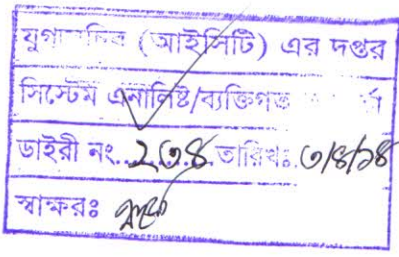 যুগ্মসচিব (আইসিটি) এর দপ্তর
সিস্টেম এনালিষ্ট/ব্যক্তিগত
ডাইরী নং...২৩৪ তারিখঃ.৩/৪/১৪
স্বাক্ষরঃ